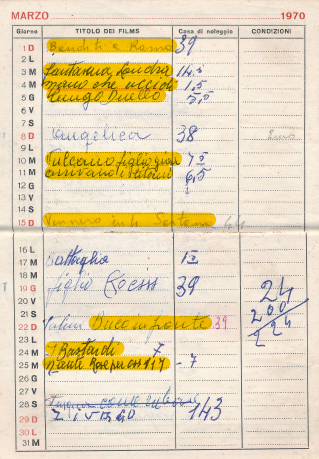 MARZO 1970
Giorno TITOLO DEI FILMS Casa di noleggio CONDIZIONI
1 D Banditi a Roma 39
2 L
3 M Fantasma Londra 14.5
4 M mano che uccide 1,5
5 G Lungo Duello 5,5
6 V
7 S
8 D Angelica 38
9 L
10 M Vulcano figlio 75
11 M arrivano i titani 6,5
12 G
13 V
14 S
15 D Vennero in 4 Sartana 44
16 L
17 M Battaglia
18 M
19 G figlio 39 24
20 V 200
21 S 224
22 D Buco in fronte 39
23 L
24 M I Bastardi 7
25 M Mille Rose per oss 117 - 7
26 G
27 V
28 S come
29 D ZIVAGO 143
30 L
31 M